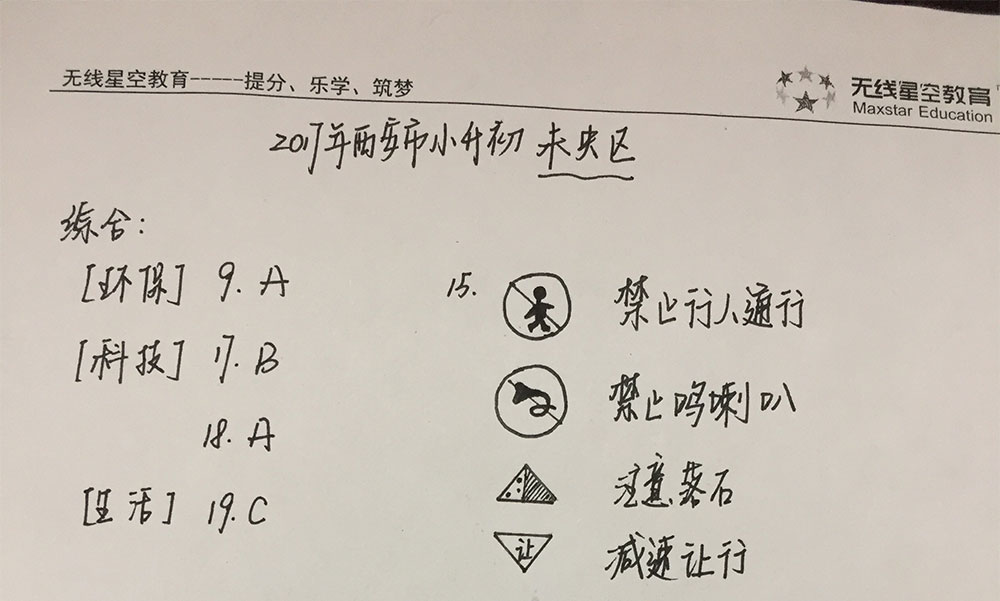 无线星空教育-----提分、乐学、筑梦
无线星空教育
Maxstar Education
2017年西安市小升初 未央区
综合:
[环保] 9. A
[科技] 17. B
18. A
[生活] 19. C
15. 禁止行人通行
禁止鸣喇叭
注意落石
让 减速让行